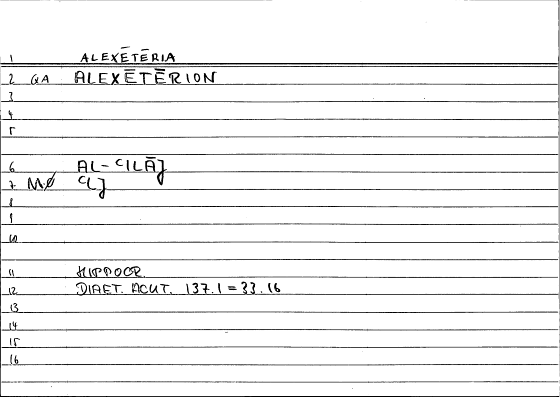 1 ALEXĒTĒRIA
2 GA ALEXĒTĒRION
3
4
5
6 AL-ʿILĀJ
7 MØ ʿLJ
8
9
10
11 HIPPOCR.
12 DIAET. ACUT. 137.1 = 33.16
13
14
15
16